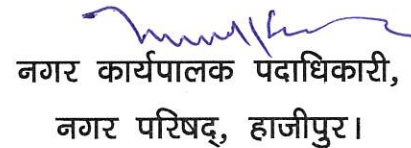 नगर कार्यपालक पदाधिकारी,
नगर परिषद्, हाजीपुर।